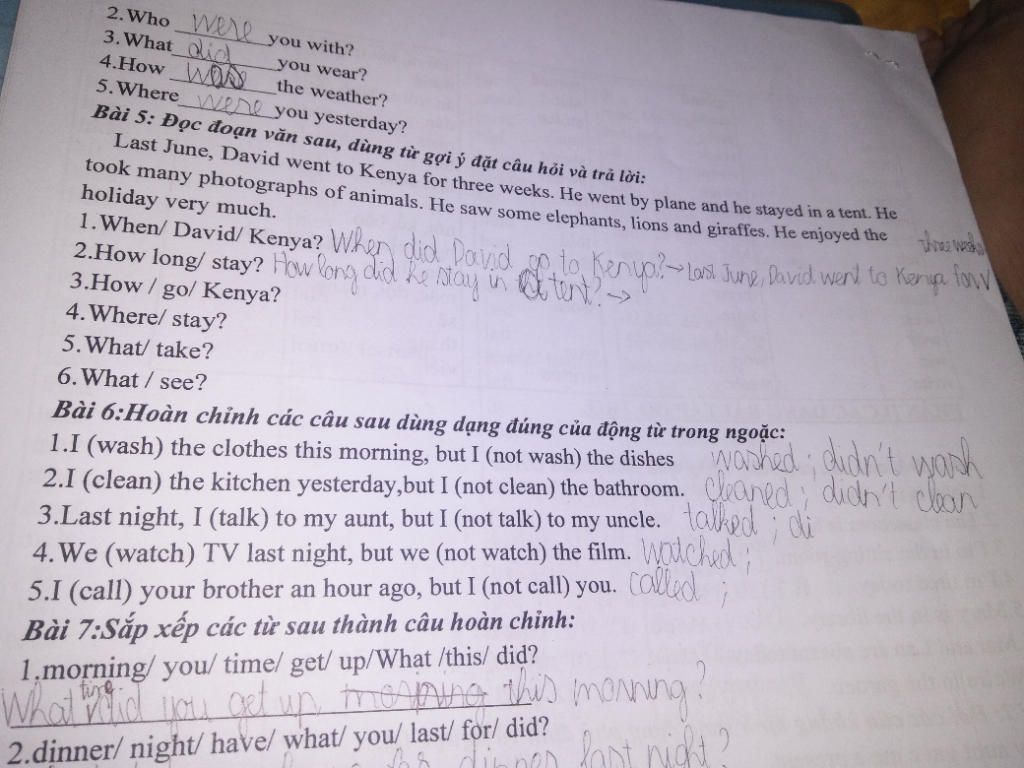 2.Who were you with?
3.What did you wear?
4.How was the weather?
5.Where were you yesterday?
Bài 5: Đọc đoạn văn sau, dùng từ gợi ý đặt câu hỏi và trả lời:
Last June, David went to Kenya for three weeks. He went by plane and he stayed in a tent. He
took many photographs of animals. He saw some elephants, lions and giraffes. He enjoyed the
holiday very much.
three weeks
1.When/ David/ Kenya? When did David go to Kenya? → Last June, David went to Kenya for
2.How long/ stay? How long did he stay in tent? →
3.How / go/ Kenya?
4.Where/ stay?
5.What/ take?
6.What / see?
Bài 6:Hoàn chỉnh các câu sau dùng dạng đúng của động từ trong ngoặc:
1.I (wash) the clothes this morning, but I (not wash) the dishes washed ; didn't wash
2.I (clean) the kitchen yesterday,but I (not clean) the bathroom. cleaned ; didn't clean
3.Last night, I (talk) to my aunt, but I (not talk) to my uncle. talked ; di
4.We (watch) TV last night, but we (not watch) the film. watched ;
5.I (call) your brother an hour ago, but I (not call) you. called ;
Bài 7:Sắp xếp các từ sau thành câu hoàn chỉnh:
1.morning/ you/ time/ get/ up/What /this/ did?
What time did you get up morning this morning?
2.dinner/ night/ have/ what/ you/ last/ for/ did?
for dinner last night?